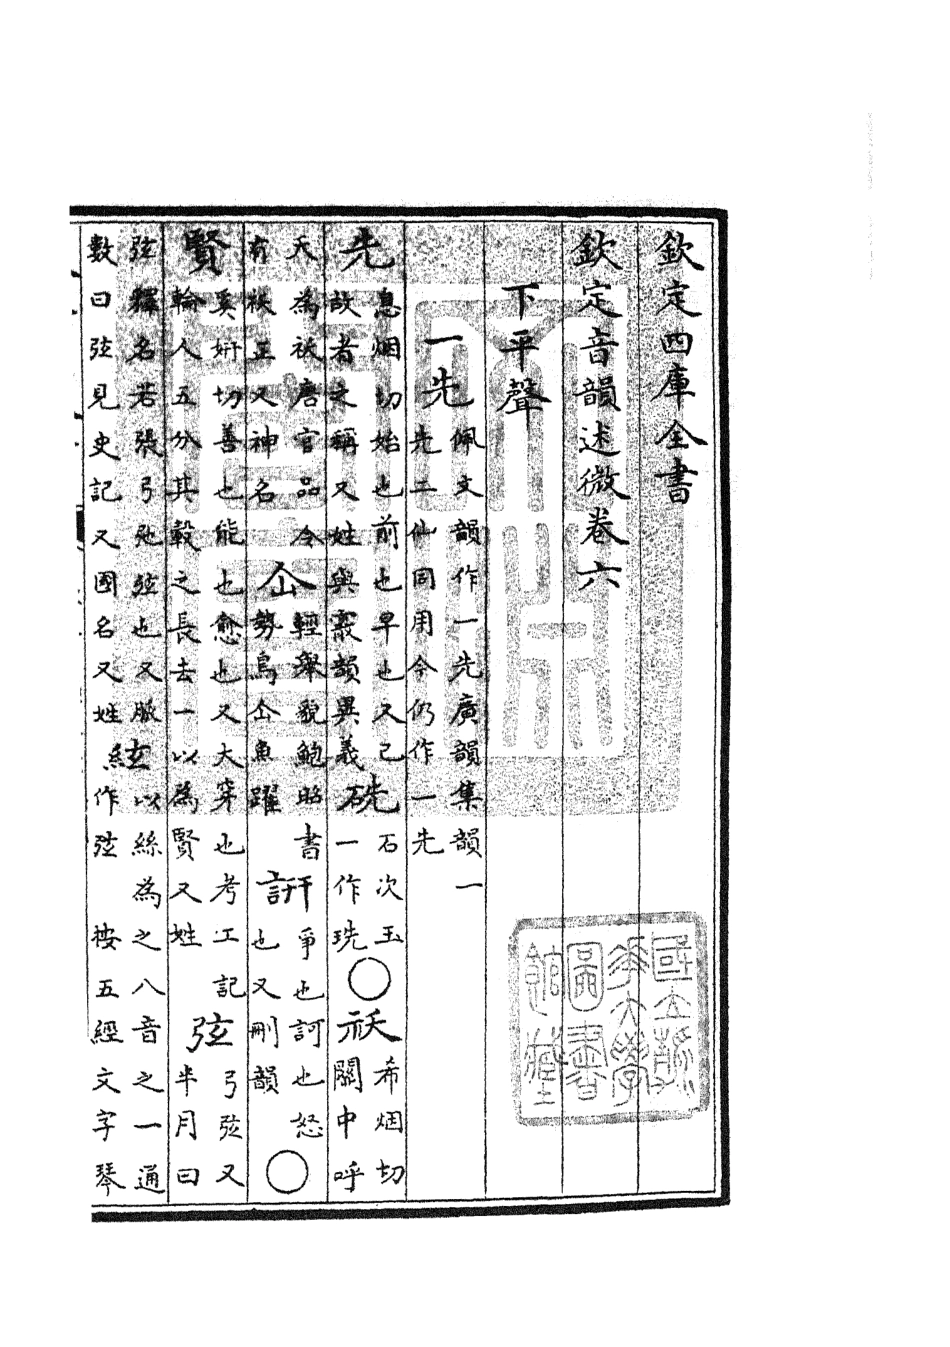 欽定四庫全書
欽定音韻述微卷六
下平聲
一先佩文韻作一先廣韻集韻一先二仙同用今仍作一先
先息烟切始也前也早也又已故者之稱又姓與霰韻異義 石次玉一作珗○祆希烟切關中呼
天為祆唐官品令有祆正又神名仚輕舉貌鮑昭書勢鳥仚魚躍訮爭也訶也怒也又刪韻○
賢奚姸切善也能也愈也又大穿也考工記輪人五分其轂之長去一以為賢又姓弦弓弦又半月曰
弦釋名若張弓弛弦也又脈數曰弦見史記又國名又姓絃以絲為之八音之一通作弦 按五經文字琴
國立清華大學圖書館藏